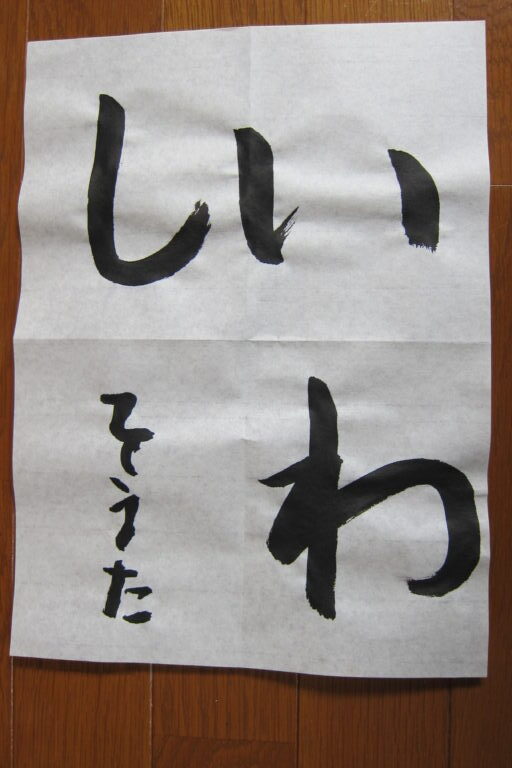 いわし
そうた